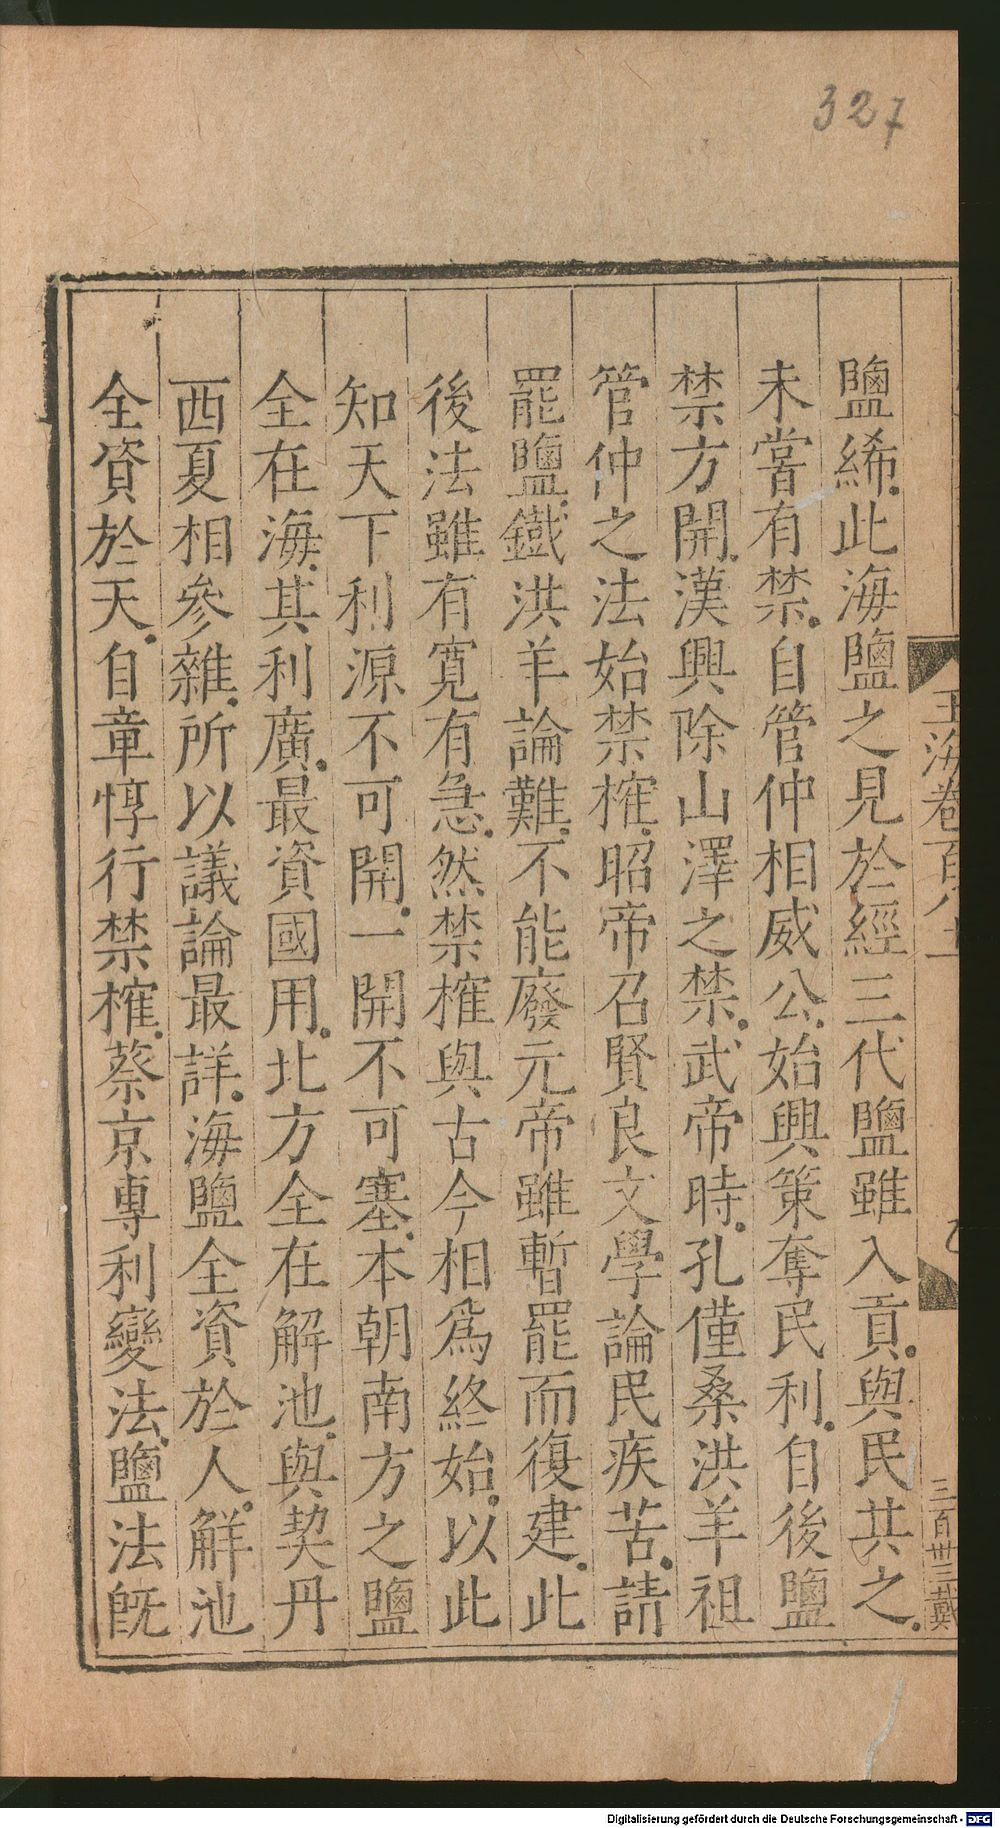 327
玉海卷百八十一
三百卅三戴
鹽絺。此海鹽之見於經三代鹽雖入貢。與民共之。
未嘗有禁。自管仲相威公。始興策奪民利。自後鹽
禁方開。漢興除山澤之禁。武帝時。孔僅桑洪羊祖
管仲之法始禁榷。昭帝召賢良文學論民疾苦。請
罷鹽。鐵洪羊論難。不能廢元帝雖暫罷而復建。此
後法雖有寛有急。然禁榷與古今相爲終始。以此
知天下利源不可開。一開不可塞。本朝南方之鹽
全在海。其利廣。最資國用。北方全在解池。與契丹
西夏相參雜。所以議論最詳。海鹽全資於人。解池
全資於天。自章惇行禁榷。蔡京專利變法。鹽法旣
Digitalisierung gefördert durch die Deutsche Forschungsgemeinschaft - DFG